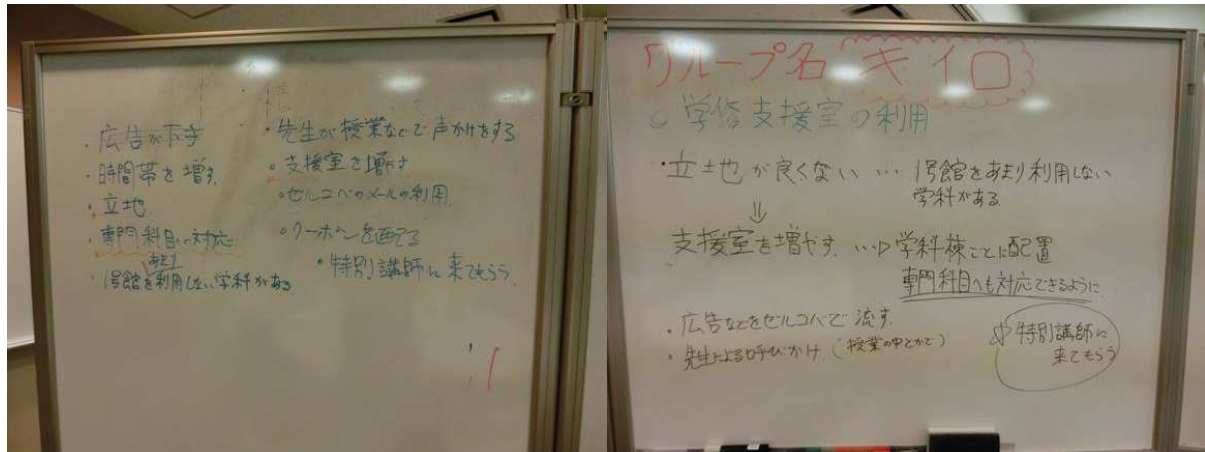 ・広告が下手
・時間帯を増す。
・立地
・専門科目に対応
あまり
・1号館を利用しない学科がある
・先生が授業などで声かけをする
・支援室を増やす
・セルコバのメールの利用
・クーポンを配る
・特別講師に来てもらう
グループ名 キイロ
○学修支援室の利用
・立地が良くない … 1号館をあまり利用しない
学科がある
⇓
支援室を増やす。…▷学科棟ごとに配置
専門科目へも対応できるように
・広告などをセルコバで流す。
・先生による呼びかけ (授業の中とかで)
特別講師に
来てもらう